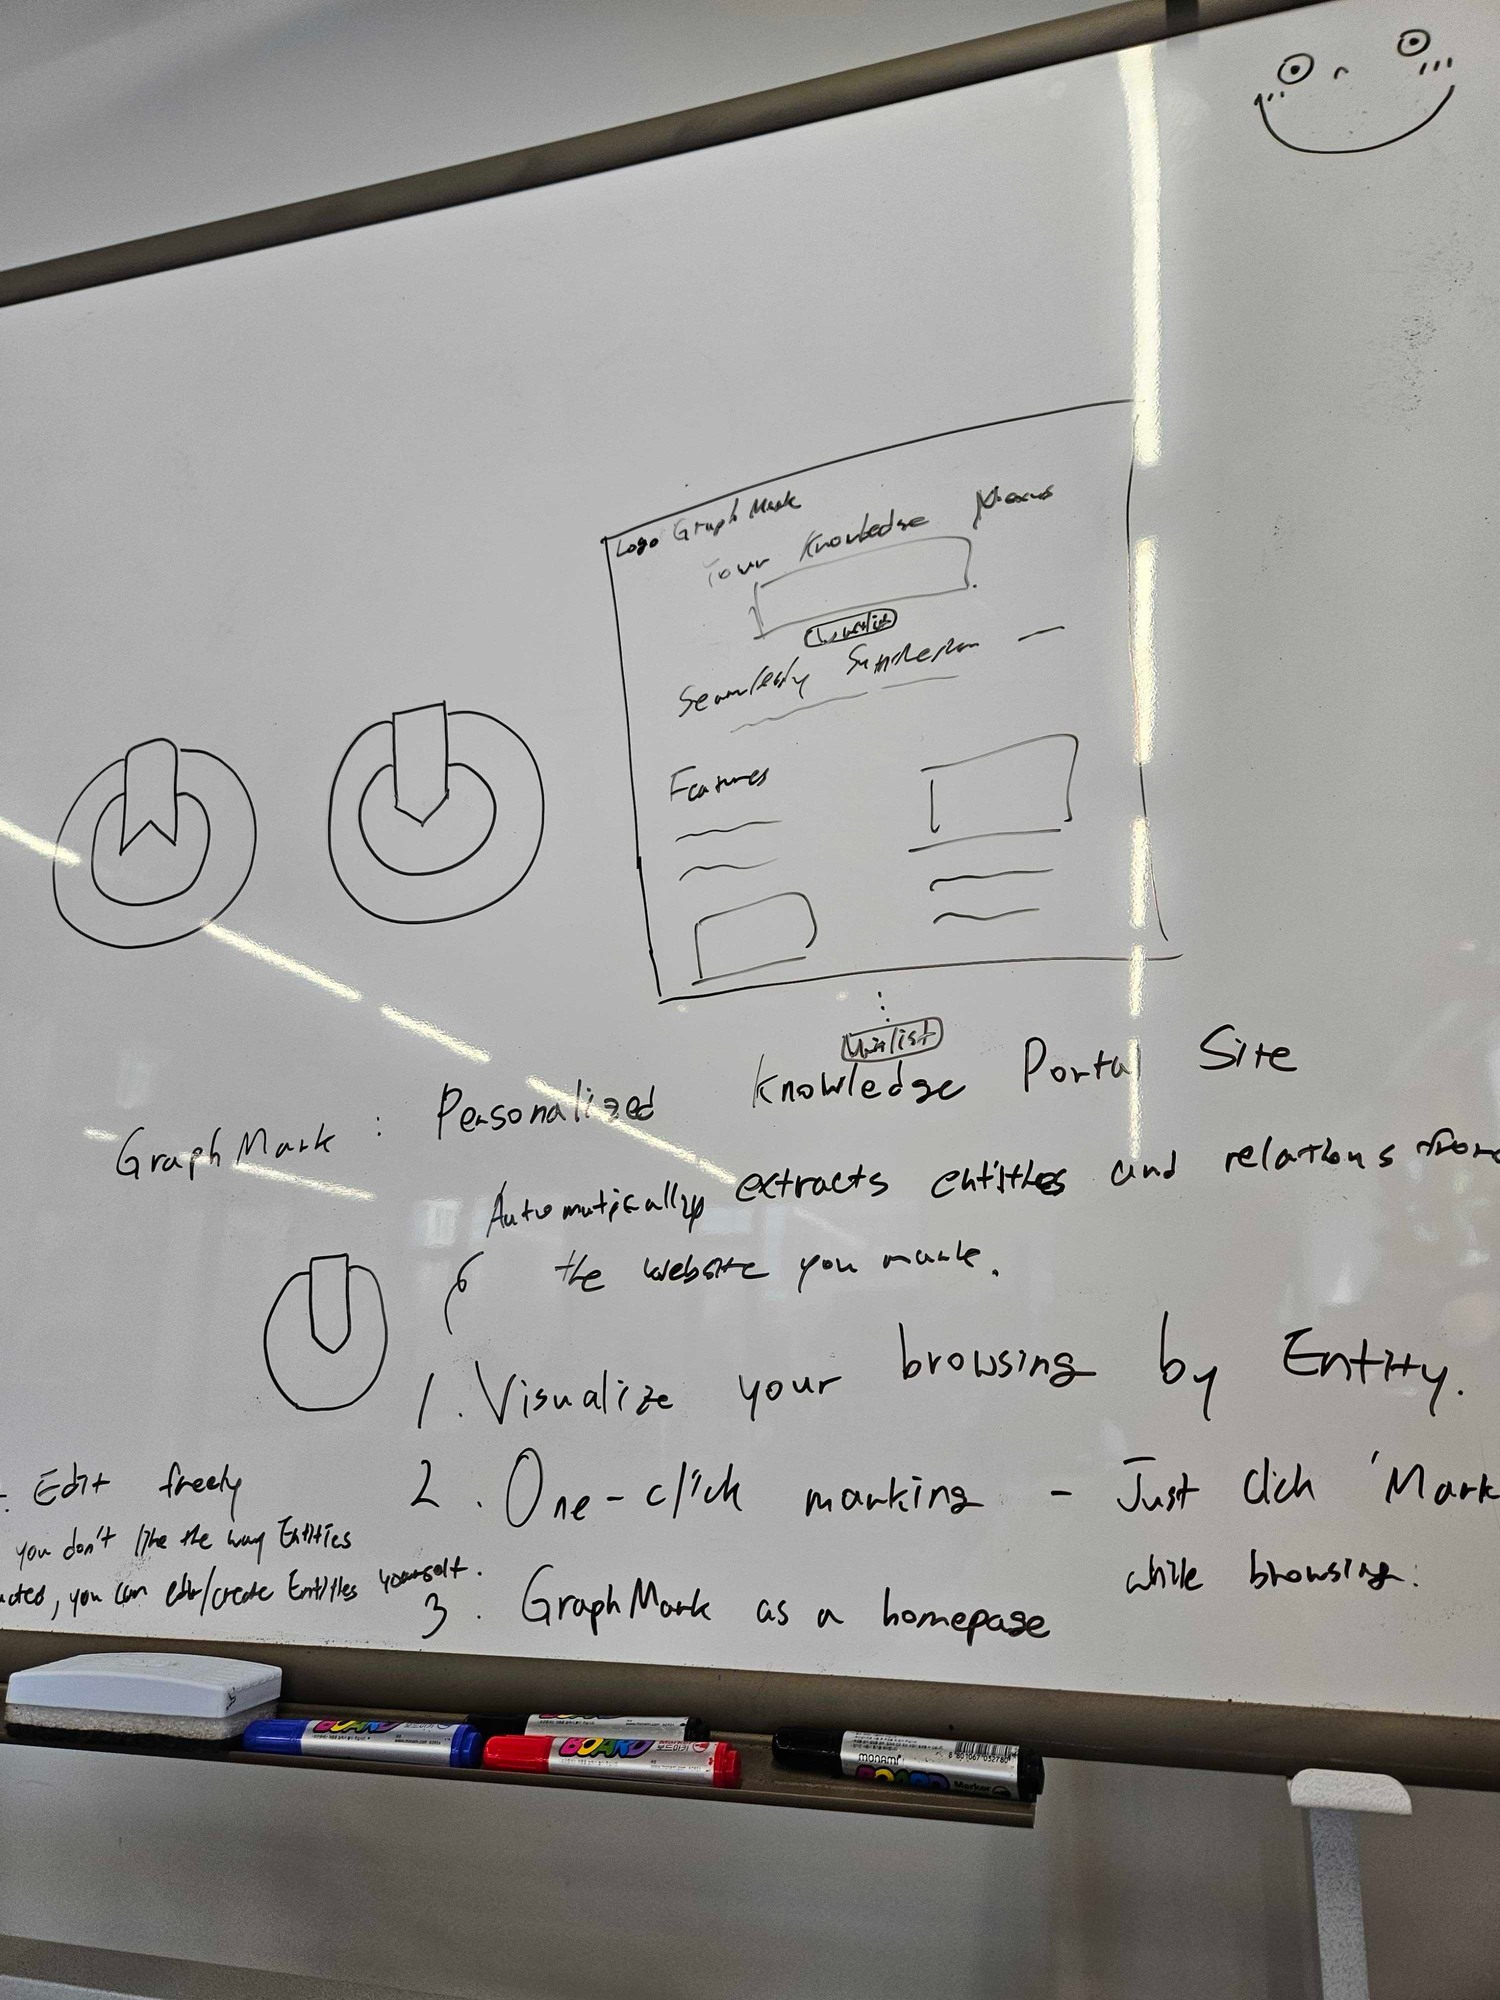 Logo GraphMark
Your Knowledge Nexus
Seamlessly
Features
Waitlist
GraphMark : Personalized Knowledge Portal Site
Automatically extracts entities and relations from
the website you mark.
1. Visualize your browsing by Entity.
2. One-click marking - Just click 'Mark
while browsing.
3. GraphMark as a homepage
Edit freely
you don't like the way Entities
acted, you can edit/create Entities yourself.
BOARD
보드마카
BOARD
보드마카
monami
BOARD
Marker
8 801067 032780